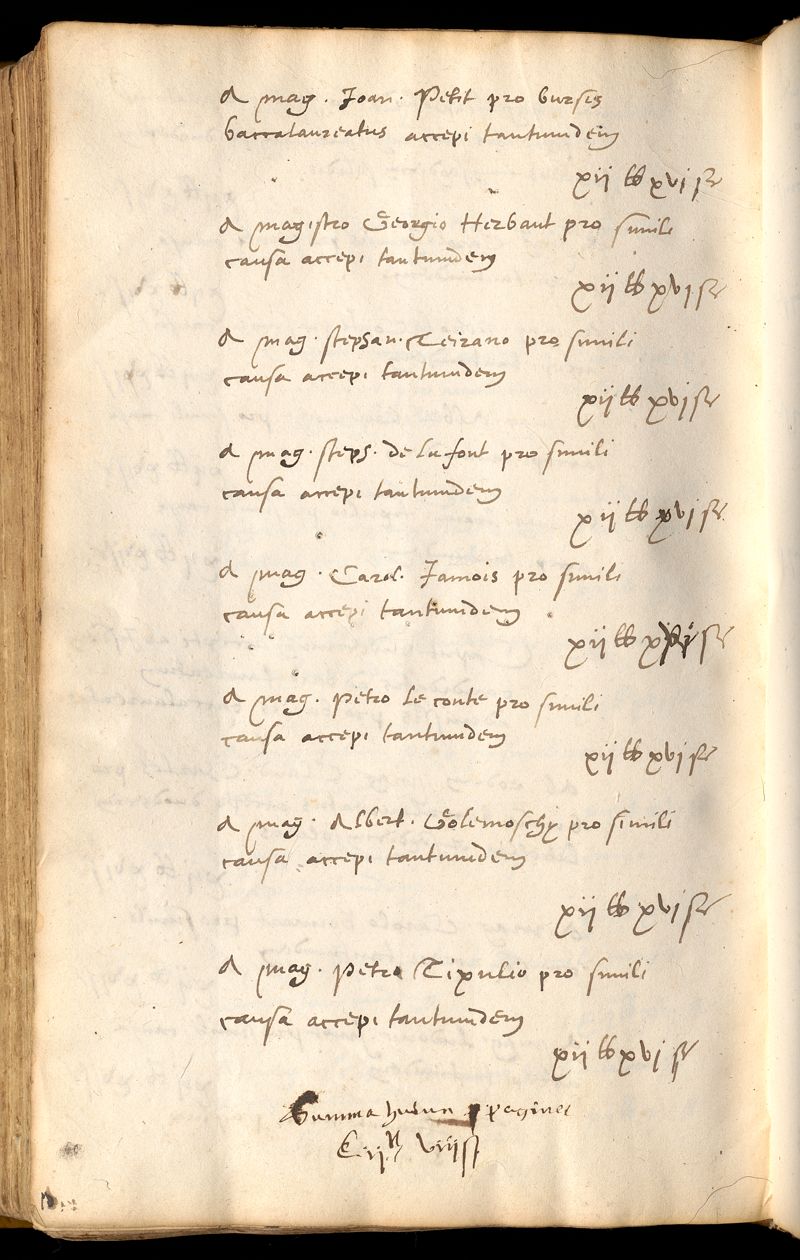 A mag. Joan. Petit pro bursis
baccalaureatus accepi tantumdem
xij lb xvj s
A magistro Georgio Herbaut pro simili
causa accepi tantumdem
xij lb xvj s
A mag. stephan. Teirano pro simili
causa accepi tantumdem
xij lb xvj s
A mag. steph. de la font pro simili
causa accepi tantumdem
xij lb xvj s
A mag. Carol. Jamois pro simili
causa accepi tantumdem
xij lb xvj s
A mag. Petro le conte pro simili
causa accepi tantumdem
xij lb xvj s
A mag. Albert. Golemoschy pro simili
causa accepi tantumdem
xij lb xvj s
A mag. Petro Tixulio pro simili
causa accepi tantumdem
xij lb xvj s
Summa huius paginae
Cij lb viij s